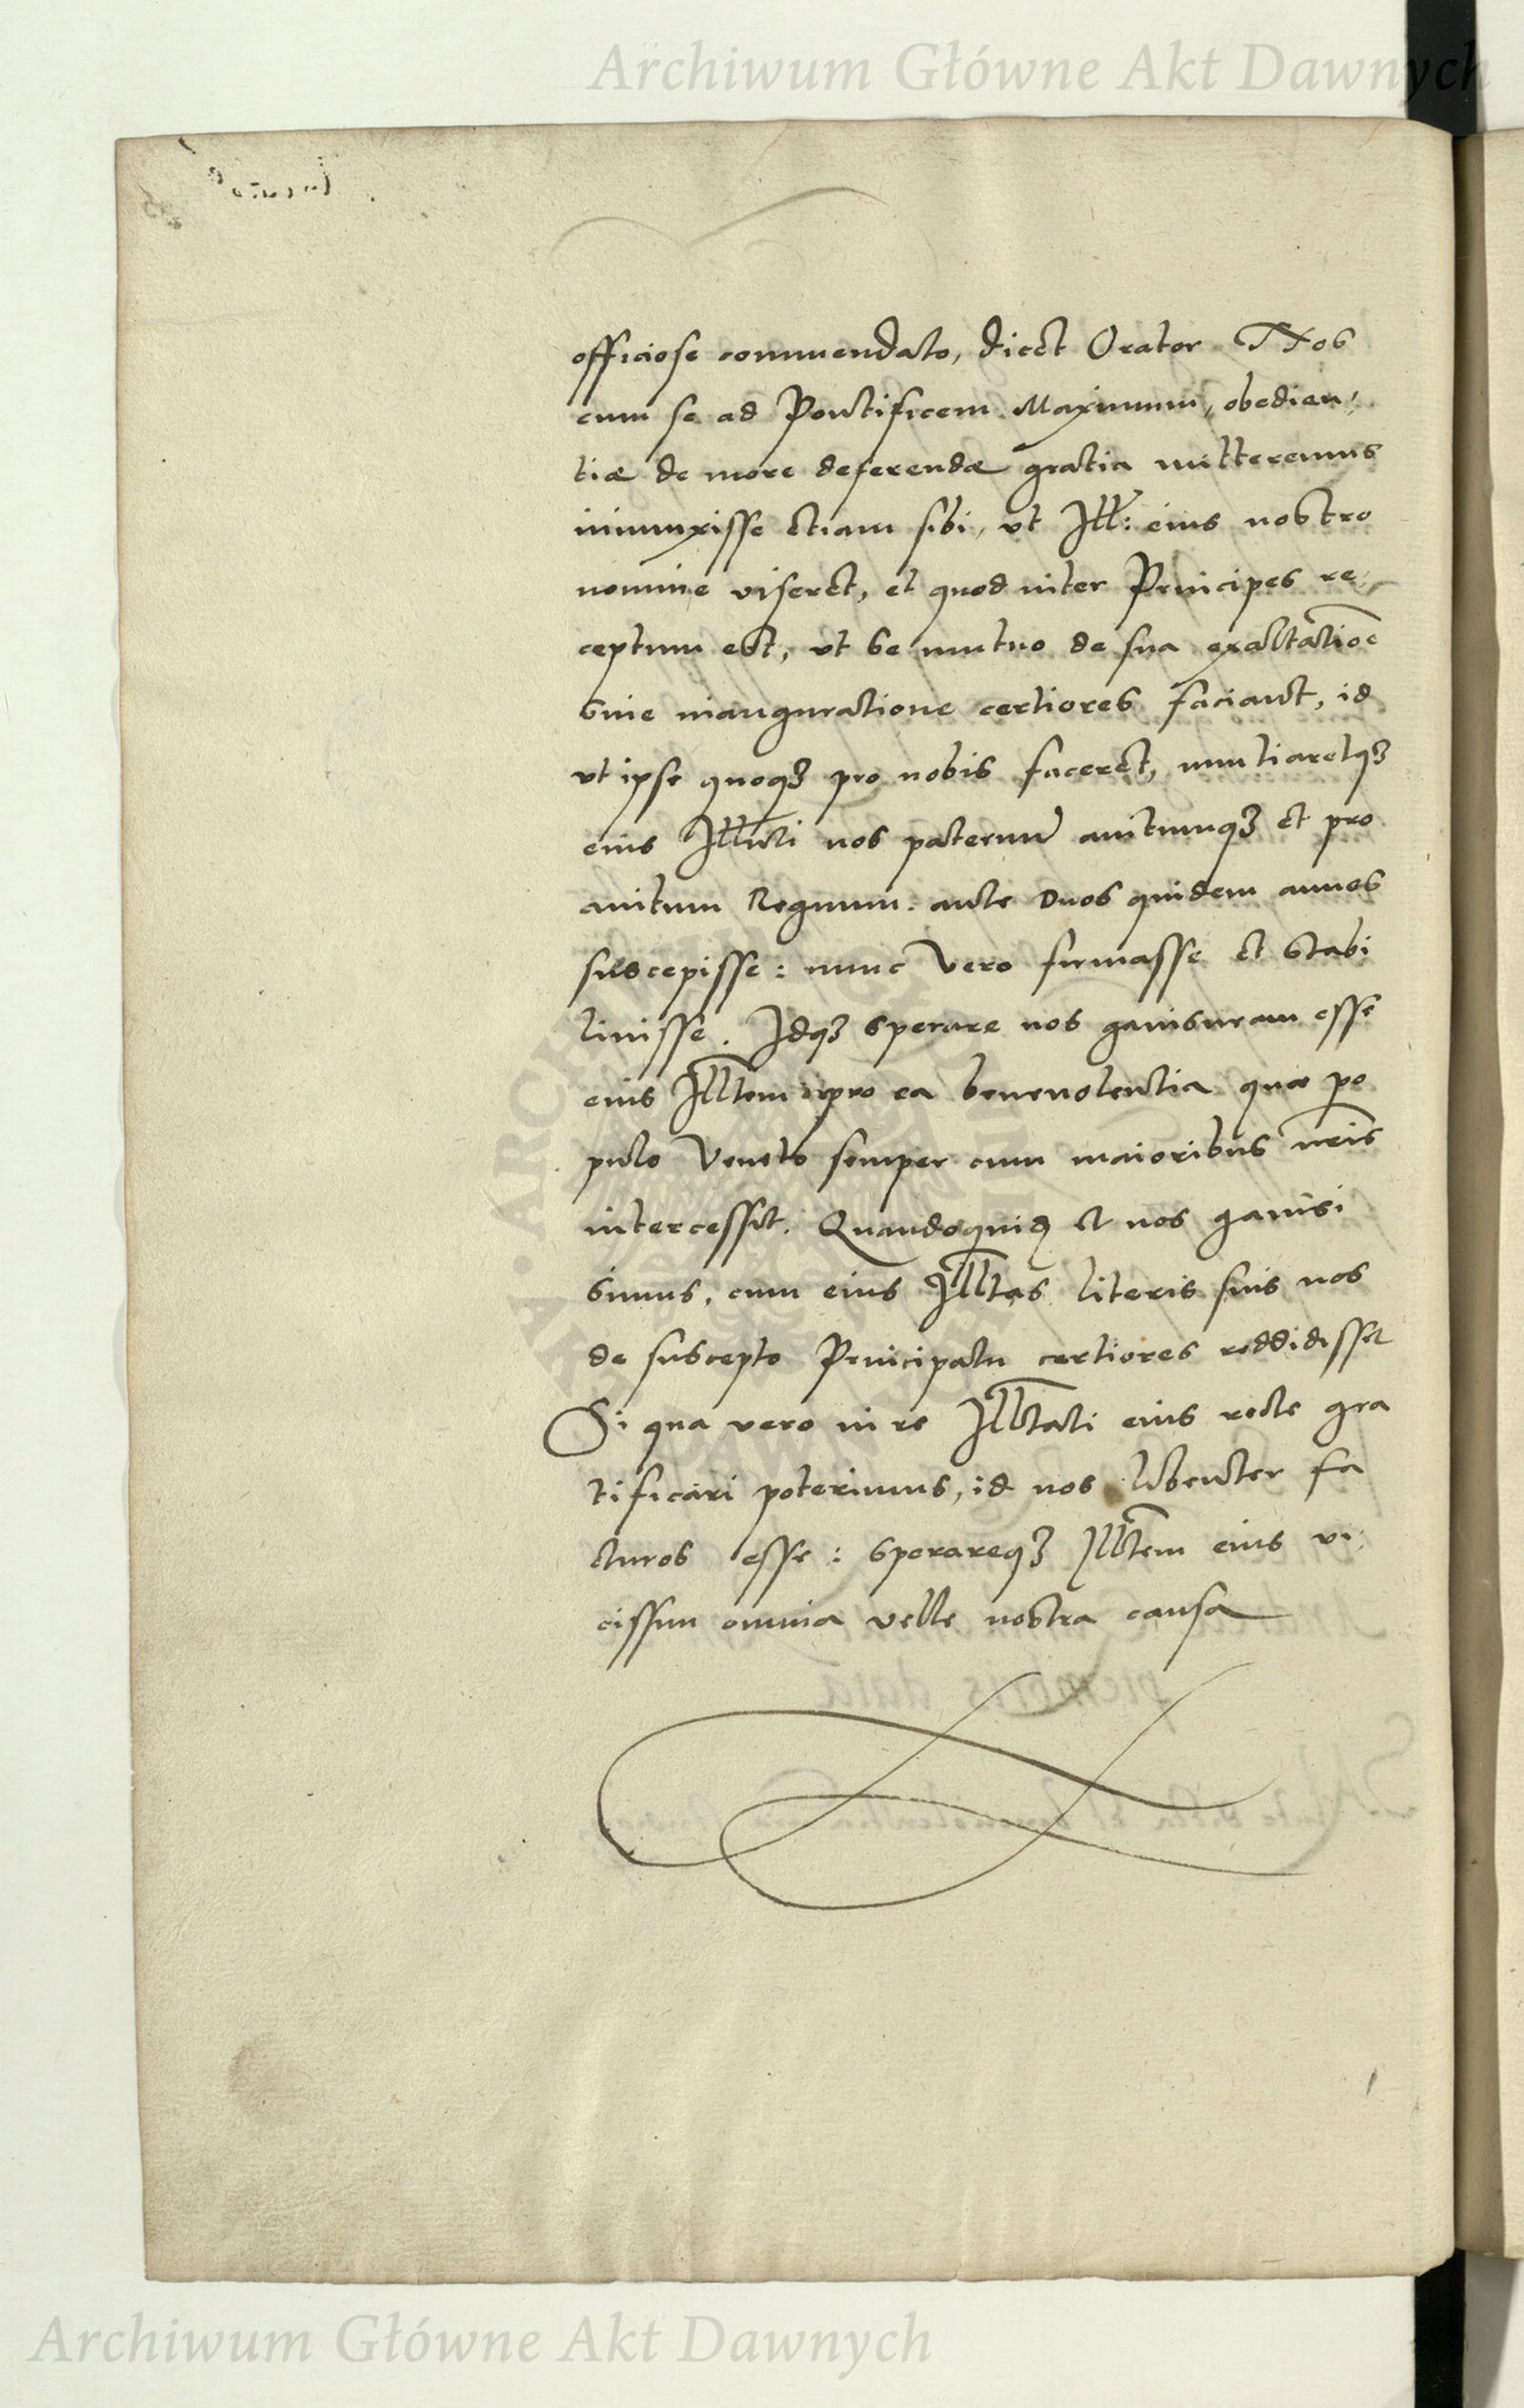 Archiwum Główne Akt Dawnych
officiose commendato, dicet Orator Nos
cum se ad Pontificem Maximum, obedien,
tiæ de more deferendæ gratia mitteremus
iniunxisse etiam sibi, ut Ill: eius nostro
nomine viseret, et quod inter Principes re,
ceptum est, ut se mutuo de sua exaltatioē
sive inauguratione certiores faciant, id
ut ipse quoqꝫ pro nobis faceret, nuntiaretqꝫ
eius Illti nos paternū avitumqꝫ et pro
avitum Regnum. ante duos quidem annos
suscepisse: nunc vero firmasse et stabi
livisse. Idqꝫ sperare nos gavisuram esse
eius Illtem pro ea benevolentia quæ po
pulo Veneto semper cum maioribus nr̄is
intercessit. Quandoquidē et nos gavisi
simus, cum eius Illtas literis suis nos
de suscepto Principatu certiores reddidisset
Si qua vero in re Illtati eius recte gra
tificari poterimus, id nos libenter fa
cturos esse: sperareqꝫ Illtem eius vi,
cissim omnia velle nostra causa
Archiwum Główne Akt Dawnych